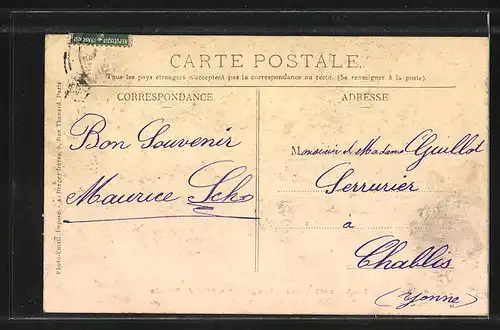 CARTE POSTALE.
Tous les pays étrangers n'acceptent pas la correspondance au recto. (Se renseigner à la poste).
CORRESPONDANCE
ADRESSE
Bon Souvenir
Maurice Scho
Monsieur et Madame Guillot
Serrurier
à
Chablis
(Yonne)
Photo-Email (Déposé). A. Breger frères, 9, Rue Thénard, Paris